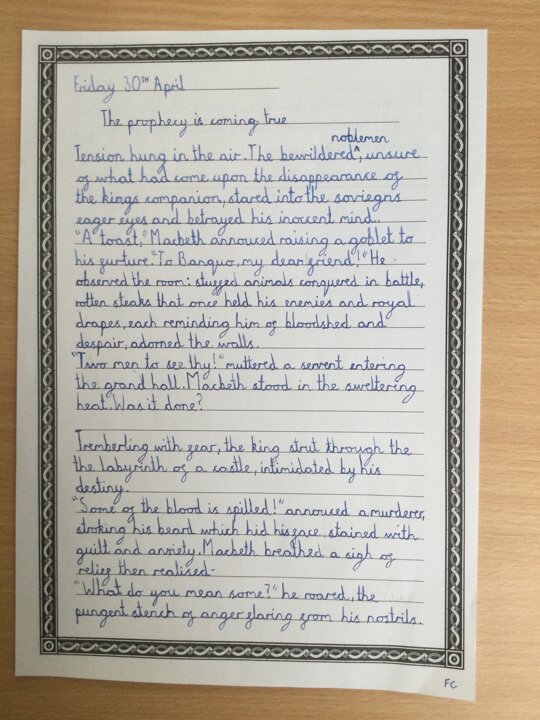 Friday 30TH April
The prophecy is coming true
noblemen
Tension hung in the air. The bewildered^, unsure
of what had come upon the disappearance of
the kings companion, stared into the soviegns
eager eyes and betrayed his inocent mind.
"A toast," Macbeth annouced raising a goblet to
his furture. "To Banquo, my dear friend!" He
observed the room: stuffed animals conquered in battle,
rotten steaks that once held his enemies and royal
drapes, each reminding him of bloodshed and
despair, adorned the walls.
"Two men to see thy!" muttered a servent entering
the grand hall. Macbeth stood in the sweltering
heat. Was it done?
Tremberling with fear, the king strut through the
the labyrinth of a castle, intimidated by his
destiny.
"Some of the blood is spilled!" annouced a murderer,
stroking his beard which hid his face, stained with
guilt and anxiety. Macbeth breathed a sigh of
relief then realised-
"What do you mean some?" he roared, the
pungent stench of anger flaring from his nostrils.
FC